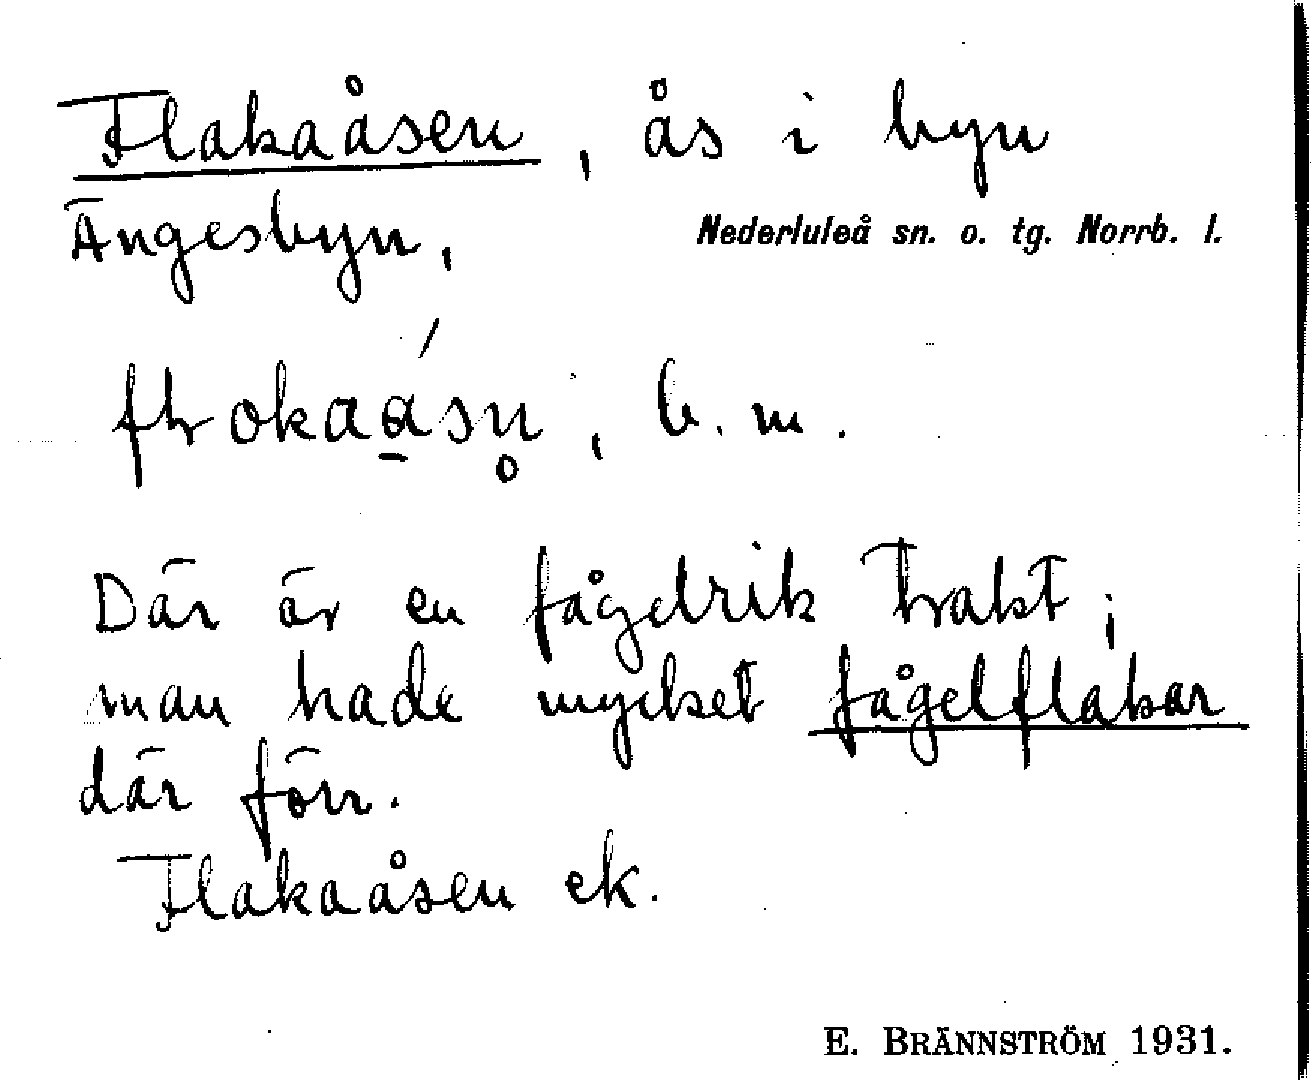 Flakaåsen, ås i byn
Ängesbyn, Nederluleå sn. o. tg. Norrb. l.
b. m.
Där är en fågelrik trakt;
man hade mycket fågelflakar
där förr.
Flakaåsen ek.
E. BRÄNNSTRÖM 1931.